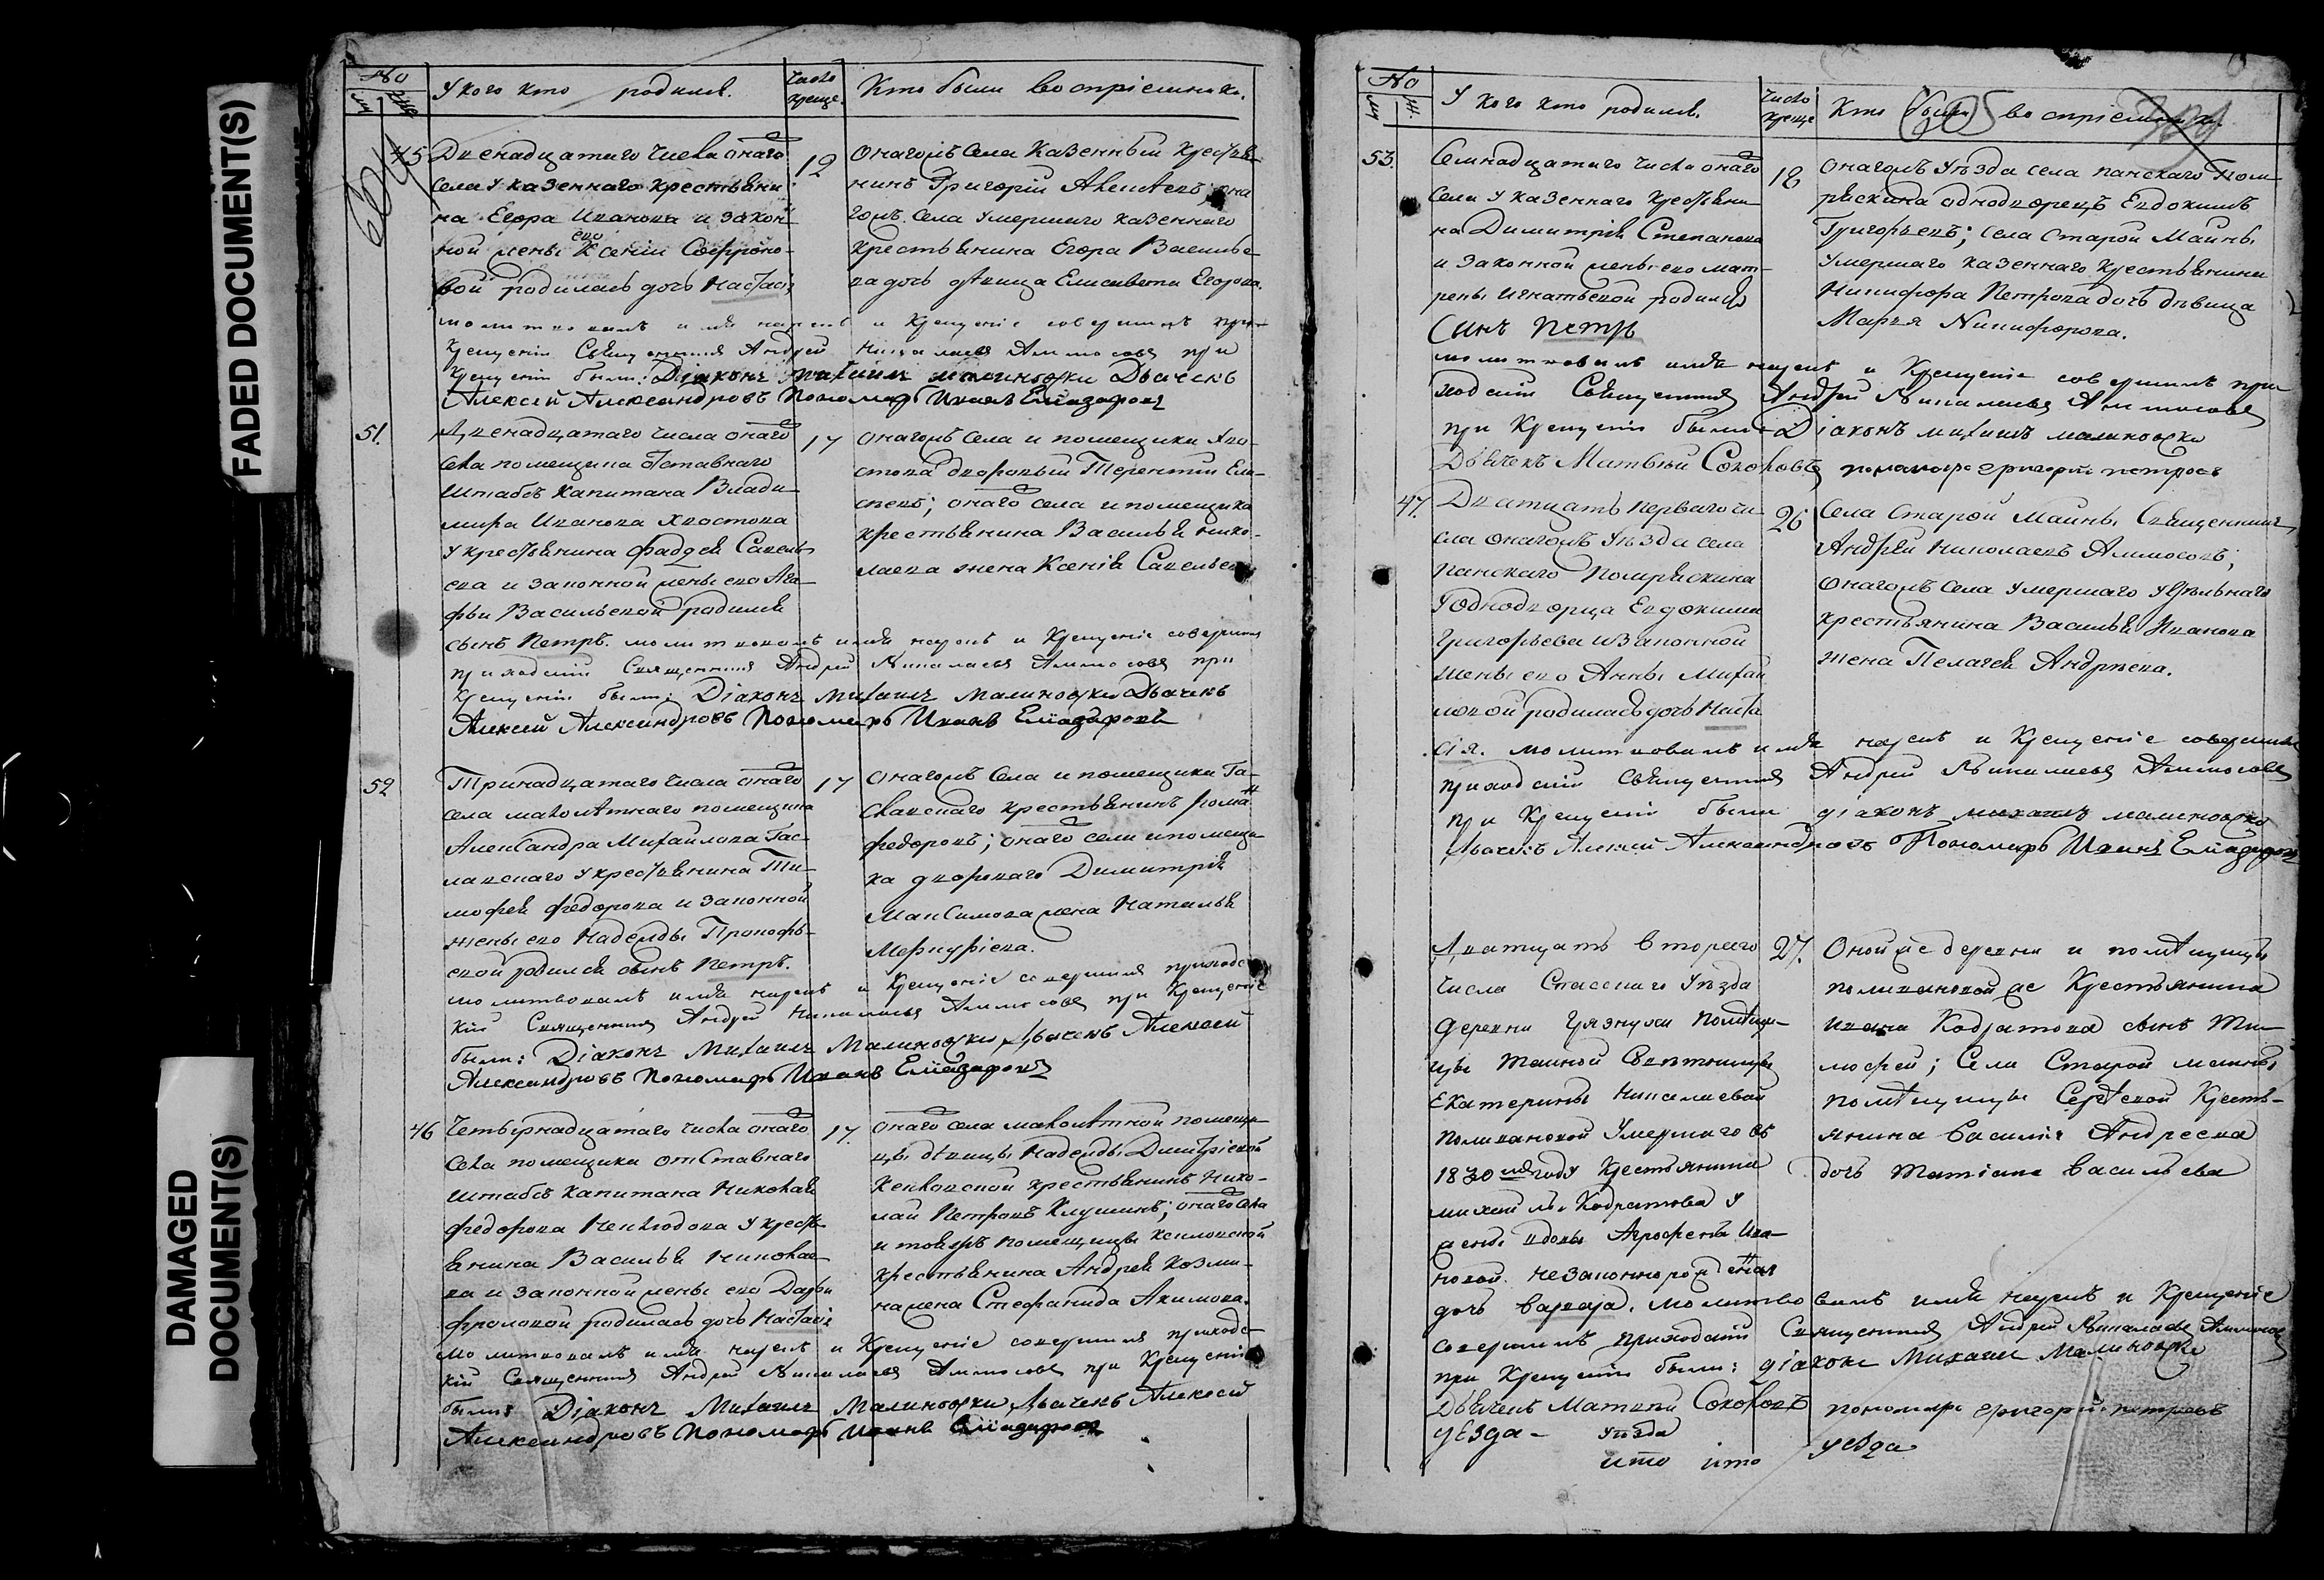 FADED DOCUMENT(S)
DAMAGED
DOCUMENT(S)
№
У кого кто родился.
Число
креще.
Кто были воспріемники.
45
Двенадцатаго числа онаго
села у казеннаго крестьяни
на Егора Иванова и закон
ной жены его Ксеніи Софроно-
вой родилась дочь Настасія
12
Онагожъ села казенный крестья
нинъ Григорій Алексѣевъ; она
гожъ села умершаго казеннаго
крестьянина Егора Василье
ва дочь дѣвица Елисавета Егорова.
молитвовалъ имя нарекъ и Крещеніе совершилъ при-
Священникъ Андрей Николаевъ Аммосовъ при
Крещеніи были: Діаконъ Михаилъ Малиновски Дьячекъ
Алексей Александровъ Пономарь Иванъ Елиазаровъ
51.
Двенадцатаго числа онаго
села помещика Отставнаго
Штабсъ Капитана Влади
мира Иванова Хвостова
у крестьянина Фаддея Савель
ева и законной жены его Ага
фьи Васильевой родился
17
Онагожъ села и помещика Хво-
стова дворовый Терентій Ели-
сеевъ; онаго села и помещика
крестьянина Василья Нико-
лаева жена Ксенія Савельева
сынъ Петръ. молитвовалъ имя нарекъ и Крещеніе совершилъ
приходскій Священникъ Андрей Николаевъ Аммосовъ при
Крещеніи были: Діаконъ Михаилъ Малиновски Дьячекъ
Алексей Александровъ Пономарь Иванъ Елиазаровъ
52
Тринадцатаго числа онаго
села малолѣтнаго помещика
Александра Михайлова Гас-
лавскаго у крестьянина Ти-
мофея Федорова и законной
жены его Надежды Прокофь-
евой родился сынъ Петръ.
17
Онагожъ села и помещика Га-
славскаго крестьянинъ Романъ
Федоровъ; онаго села и помещи
ка двороваго Димитрія
Максимова жена Наталья
молитвовалъ имя нарекъ и Крещеніе совершилъ приходс-
кій Священникъ Андрей Николаевъ Аммосовъ при Крещеніе
были: Діаконъ Михаилъ Малиновски Дьячекъ Алексей
Александровъ Пономарь Иванъ Елиазаровъ
46
Четырнадцатаго числа онаго
села помещика отставнаго
штабсъ капитана Николая
Федорова Неклюдова у кресть
янина Василья Николае
ва и законной жены его Дарьи
Фроловой родилась дочь Настасія
17.
Онаго села малолѣтной помещи
цы дѣвицы Надежды Димитріевой
крестьянинъ Нико-
лай Петровъ Клушинъ; онаго села
и тоежъ помещицы
крестьянина Андрея Козми-
на жена Стефанида Акимова.
молитвовалъ имя нарекъ и Крещеніе совершилъ приходс-
кій Священникъ Андрей Николаевъ Аммосовъ при Крещеніи
были: Діаконъ Михаилъ Малиновски Дьячекъ Алексей
Александровъ Пономарь Иванъ Елиазаровъ
№
У кого кто родился.
Число
креще
Кто были воспріемники.
605
53.
Семнадцатаго числа онаго
села у казеннаго крестьяни
на Димитрія Степанова
и законной жены его Мат-
рены Игнатьевой родился
сынъ Петръ
18
Онагожъ уѣзда села панскаго Пом-
ряскина однодворецъ Евдокимъ
Григорьевъ; села Старой Майны
умершаго казеннаго крестьянина
Никифора Петрова дочь дѣвица
Марья Никифорова.
молитвовалъ имя нарекъ и Крещеніе совершилъ при
ходскій Священникъ Андрей Николаевъ Аммосовъ
при Крещеніи были: Діаконъ Михаилъ Малиновски
Дьячекъ Матвѣй Соколовъ пономарь Григорій Петровъ
47.
Дватцать перваго чи
сла онагожъ уѣзда села
панскаго Помряскина
у однодворца Евдокима
Григорьева и законной
жены его Анны Михай
ловой родилась дочь Наста
26
Села Старой Майны Священникъ
Андрей Николаевъ Аммосовъ;
онагожъ села умершаго удѣльнаго
крестьянина Василья Иванова
жена Пелагея Андреева.
сія. молитвовалъ имя нарекъ и Крещеніе совершилъ
приходскій Священникъ Андрей Николаевъ Аммосовъ
при Крещеніи были діаконъ Михаилъ Малиновски
Дьячекъ Алексей Александровъ Пономарь Иванъ Елиазаровъ
Дватцать втораго
числа Спасскаго Уѣзда
деревни Грязнухи Помѣщи-
цы Тайной Совѣтницы
Екатерины Николаевой
Поливановой умершаго въ
1830мъ году Крестьянина
Михайлы Кодратова у
жены вдовы Агрофены Ива-
новой. незаконнорожденная
27.
Оной же деревни и помѣщицы
Поливановой же Крестьянина
Ивана Кодратова сынъ Ти-
мофей; Села Старой Майны
помѣщицы Крестъ-
янина Василія Андреева
дочь Татіана Васильева
дочь Варвара. молитвовалъ имя нарекъ и Крещеніе
совершилъ приходскій Священникъ Андрей Николаевъ Аммосовъ
при Крещеніи были: діаконъ Михаилъ Малиновски
Дьячекъ Матвѣй Соколовъ пономарь Григорій Петровъ
уѣзда - уѣзда уѣзда
што што